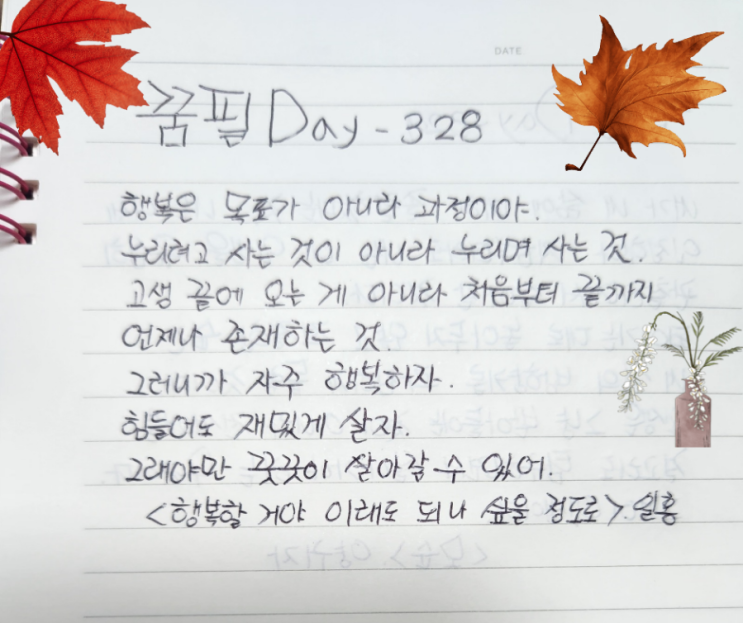 DATE
꿈필 Day - 328
행복은 목표가 아니라 과정이야.
누리려고 사는 것이 아니라 누리며 사는 것.
고생 끝에 오는 게 아니라 처음부터 끝까지
언제나 존재하는 것
그러니까 자주 행복하자.
힘들어도 재밌게 살자.
그래야만 꿋꿋이 살아갈 수 있어.
<행복할 거야 이래도 되나 싶을 정도로>. 일홍